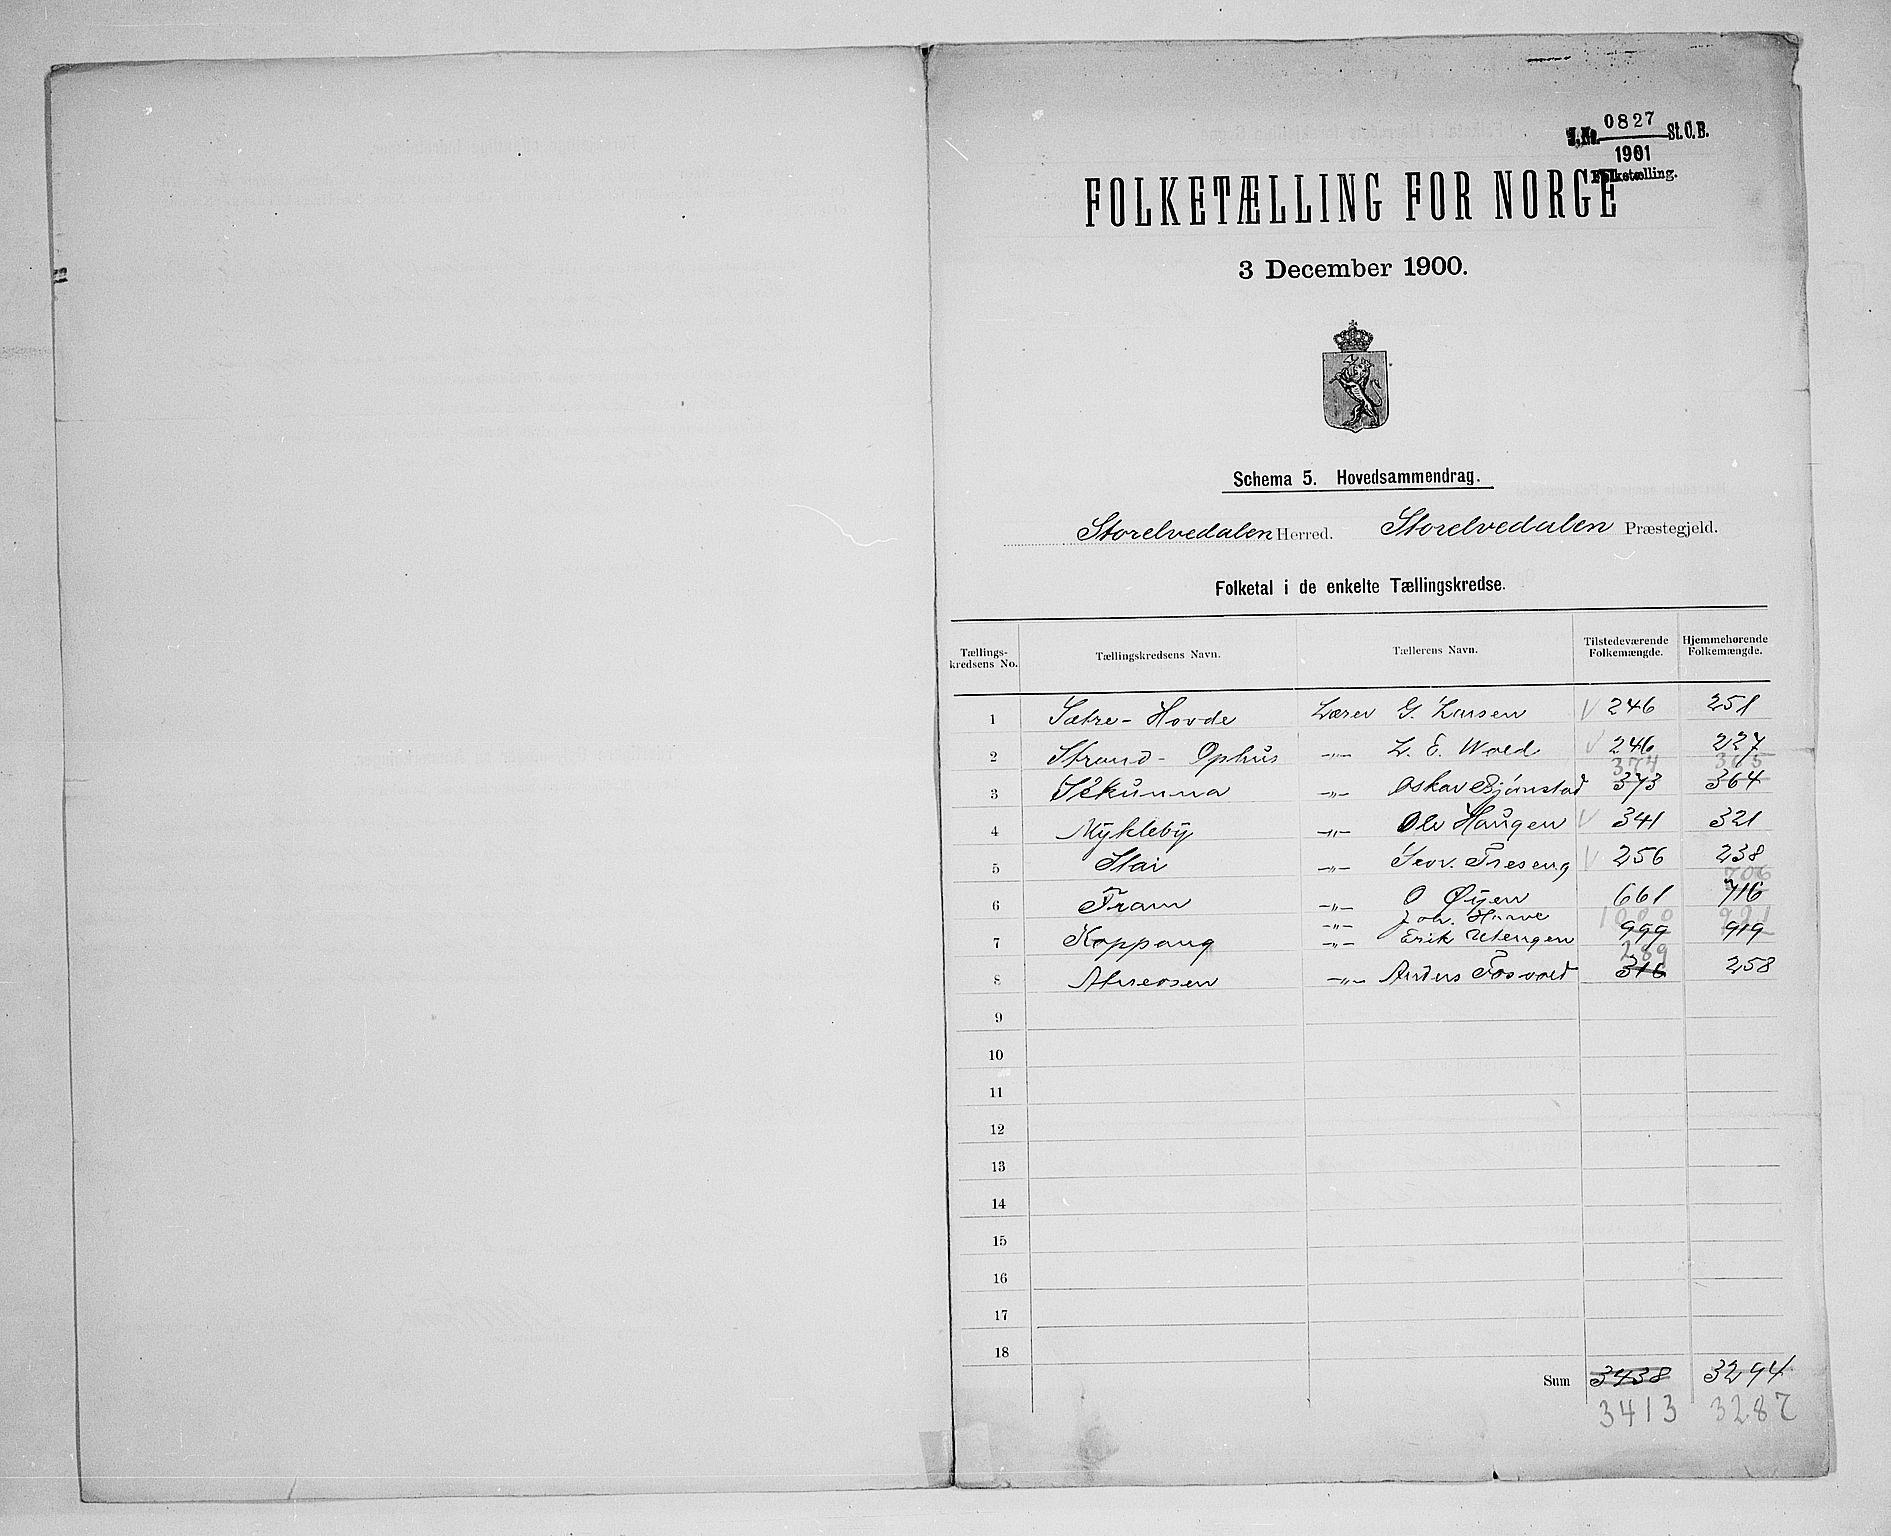 J.No. 0827 St.C.B.
1901
Folketælling.
FOLKETÆLLING FOR NORGE
3 December 1900.
Schema 5. Hovedsammendrag.
Storelvedalen Herred. Storelvedalen Præstegjeld.
Folketal i de enkelte Tællingskredse.
Tællings-kredsens No. Tællingskredsens Navn. Tællerens Navn. Tilstedeværende Folkemængde. Hjemmehørende Folkemængde.
1 Sætre-Hovde Lærer G. Larsen 246 251
2 Strand-Ophus -"- L. E. Wold 246 227
374 365
3 -"- Oskar 373 364
4 Mykleby -"- Ole Haugen 341 321
5 Stai -"- Treseng 256 238
706
6 Fram -"- O Øyen 661 716
-"- Joh.
1000 921
7 Koppang -"- Erik Utengen 999 919
289
8 Atneosen -"- Anders Fosvold 316 258
9
10
11
12
13
14
15
16
17
18
Sum 3438 3294
3413 3287